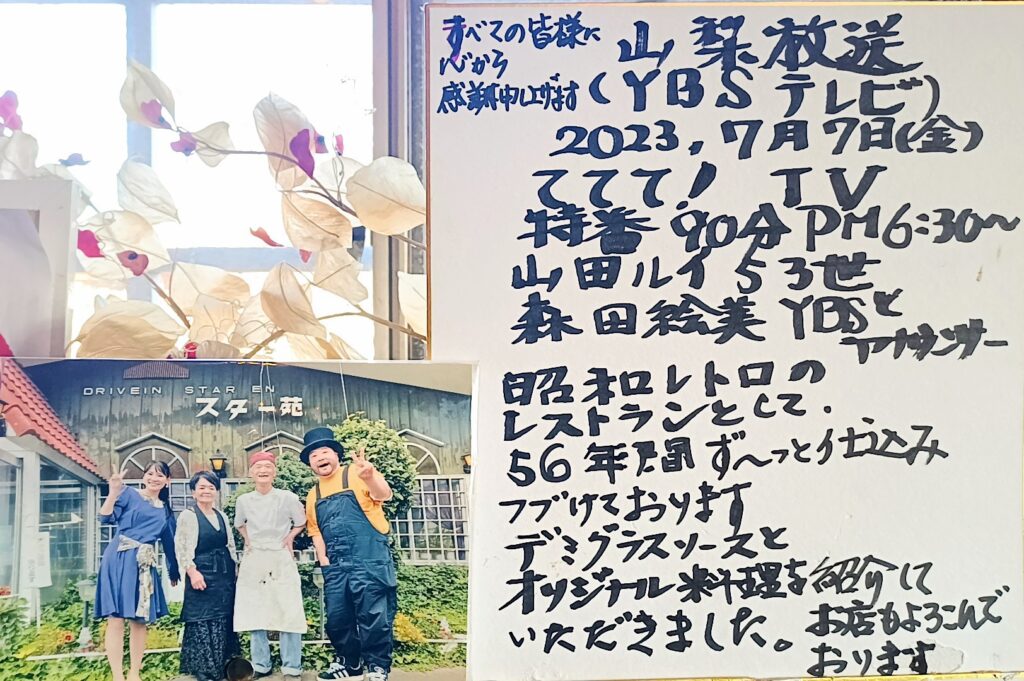 すべての皆様に
心から
感謝申し上げます
山梨放送
(YBSテレビ)
2023,7月7日(金)
ててて! TV
特番90分PM6:30〜
山田ルイ53世
森田絵美YBSと
アナウンサー
昭和レトロの
レストランとして.
56年間ず〜っと仕込み
つづけております
デミグラスソースと
オリジナル料理を紹介して
いただきました。
お店もよろこんで
おります
DRIVEIN STAR EN
スター苑